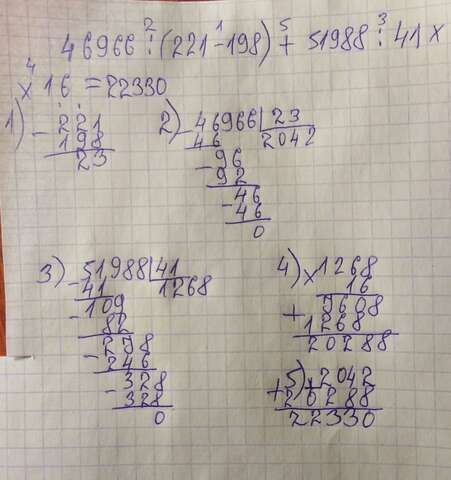 46966 : (221 - 198) + 51988 : 41 x
2 1 5 3
4
x 16 = 22330
1) - 221
198
23
2) - 46966 | 23
46 2042
- 96
92
- 46
- 46
0
3) - 51988 | 41
41 1268
- 109
82
- 278
246
- 328
328
0
4) x 1268
16
+ 9608
1268
20288
5) + 2042
+ 20288
22330